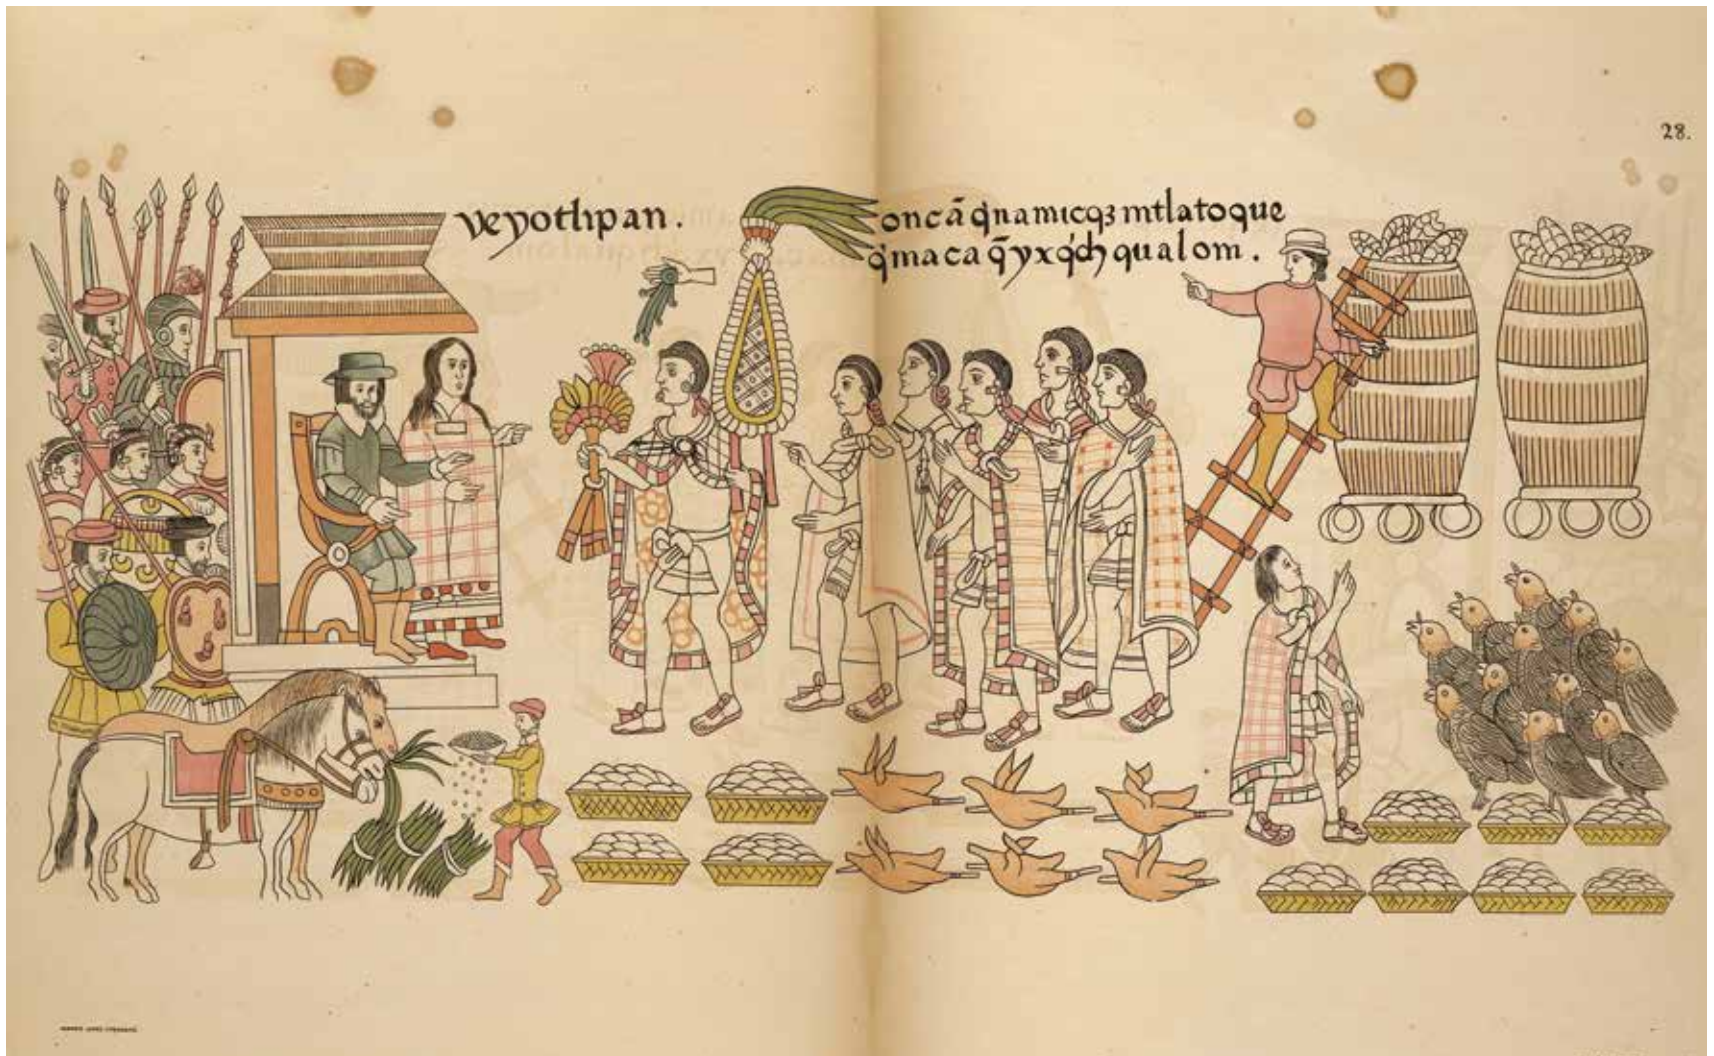 28.
veyotlipan.
oncā q̇namicqꝫ mtlatoque
q̇maca q̄yxq̇ch qualom.